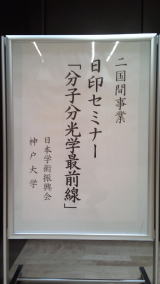 二国間事業
日印セミナー
「分子分光学最前線」
日本学術振興会
神戸大学